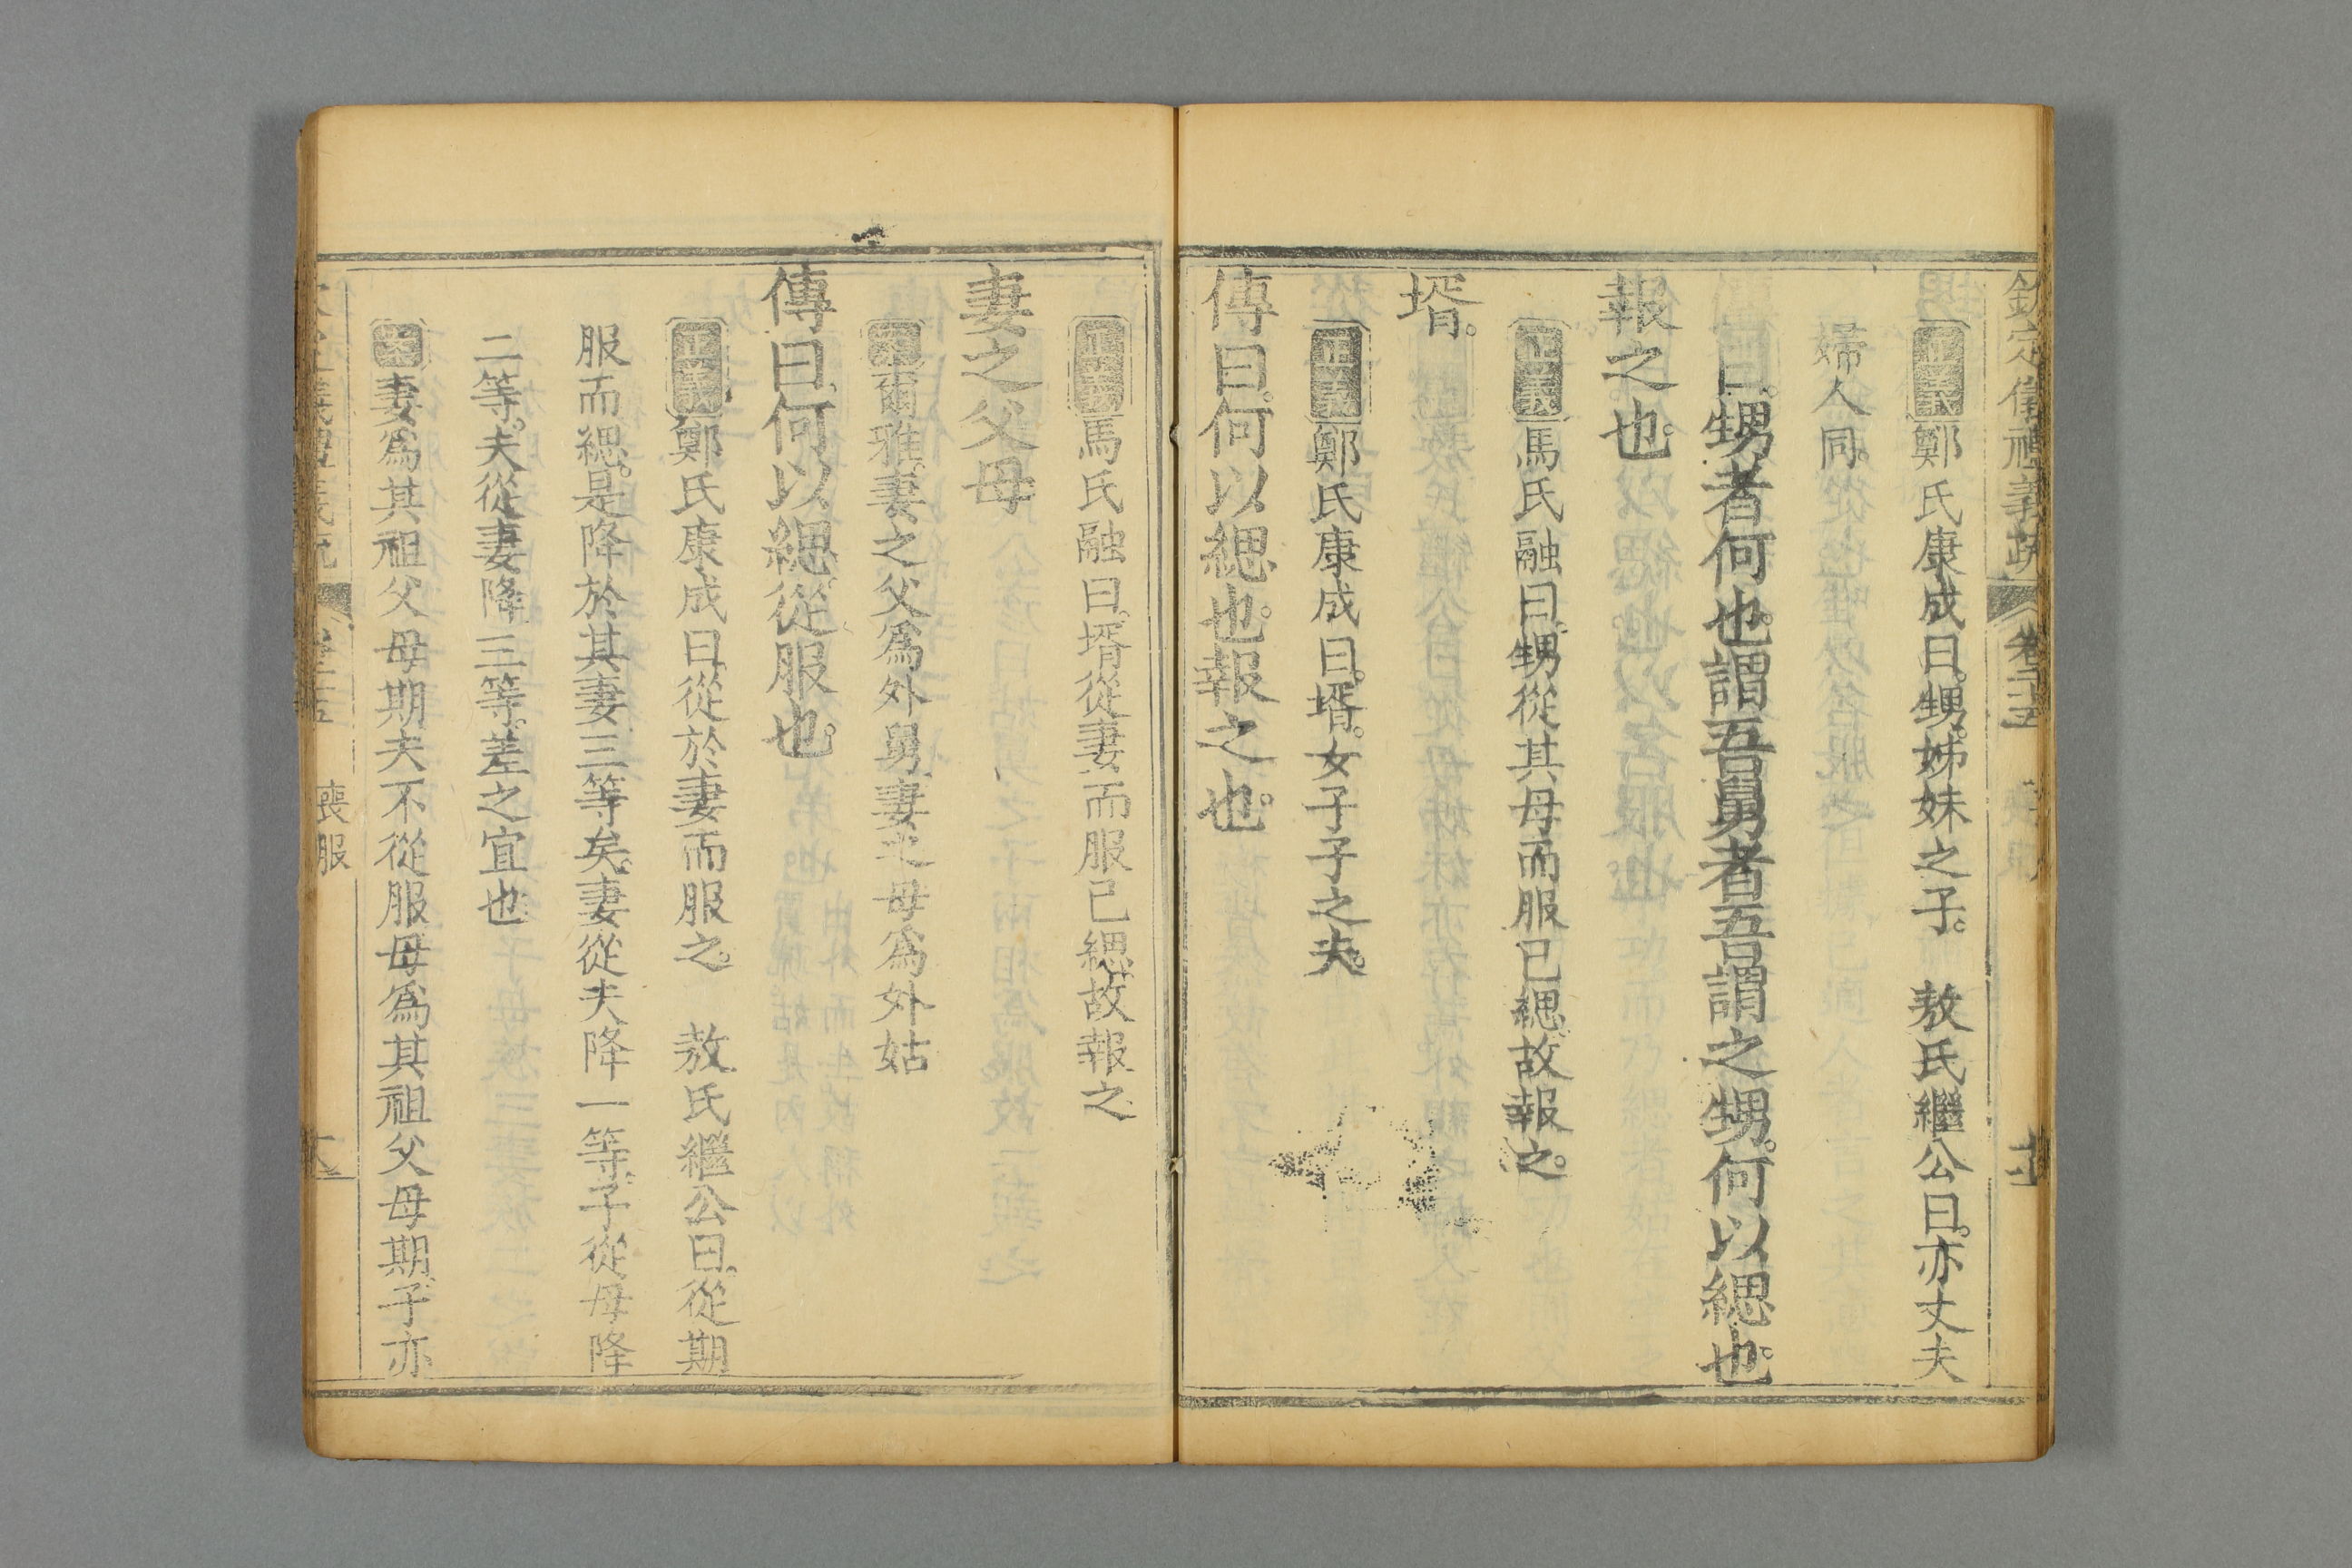 欽定儀禮義疏 卷二十五
正義鄭氏康成曰。甥。姊妹之子。 敖氏繼公曰。亦丈夫
婦人同。
曰。甥者何也。謂吾舅者吾謂之甥。何以緦也。
報之也。
正義馬氏融曰。甥從其母而服已緦。故報之。
壻。
正義鄭氏康成曰。壻。女子子之夫。
傳曰。何以緦也。報之也。
正義馬氏融曰。壻從妻而服已緦。故報之
妻之父母
爾雅。妻之父爲外舅。妻之母爲外姑
傳曰。何以緦。從服也。
正義鄭氏康成曰。從於妻而服之。 敖氏繼公曰。從期
服而緦。是降於其妻三等矣。妻從夫降一等。子從母降
二等。夫從妻降三等。差之宜也
妻爲其祖父母期。夫不從服。母爲其祖父母期。子亦
喪服